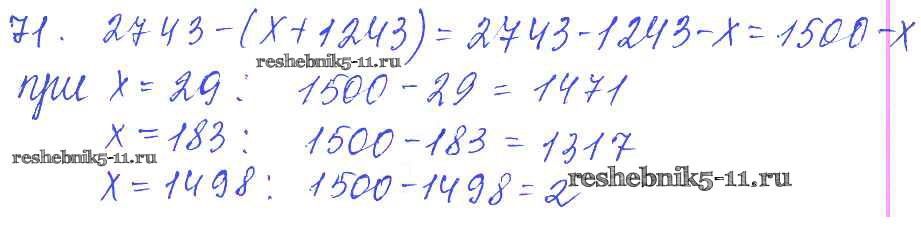 71. 2743-(x+1243)=2743-1243-x=1500-x
reshebnik5-11.ru
при x=29: 1500-29=1471
x=183: 1500-183=1317
reshebnik5-11.ru
x=1498: 1500-1498=2
reshebnik5-11.ru